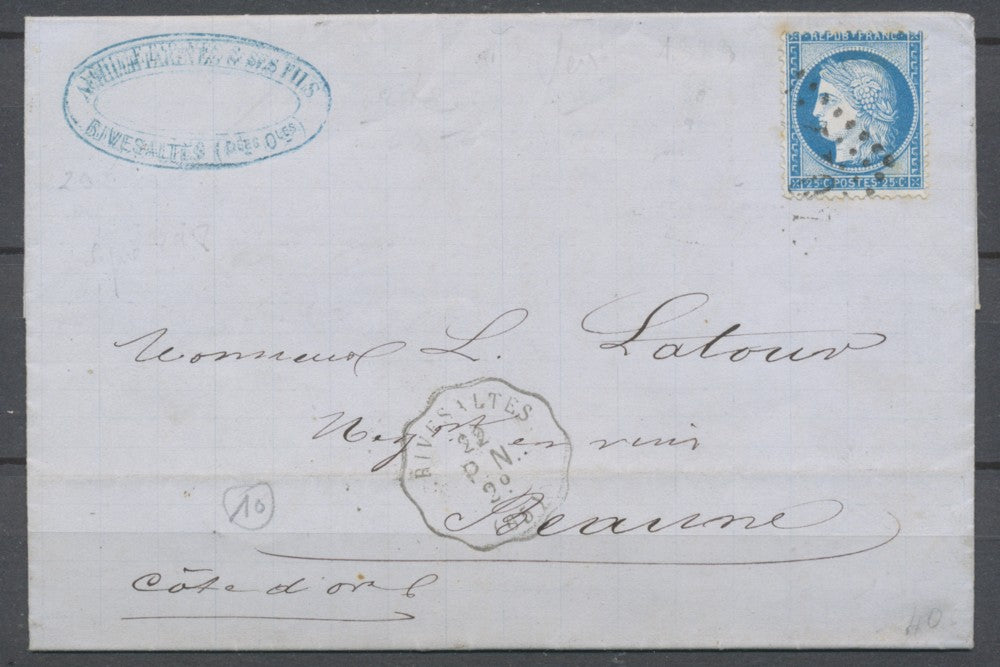 & SES FILS
RIVESALTES (Pées Oles)
REPUB FRANC
25 C POSTES 25 C
Monsieur L. Latour
Negort en vins
RIVESALTES
22
Beaune
10
Côte d'or
40